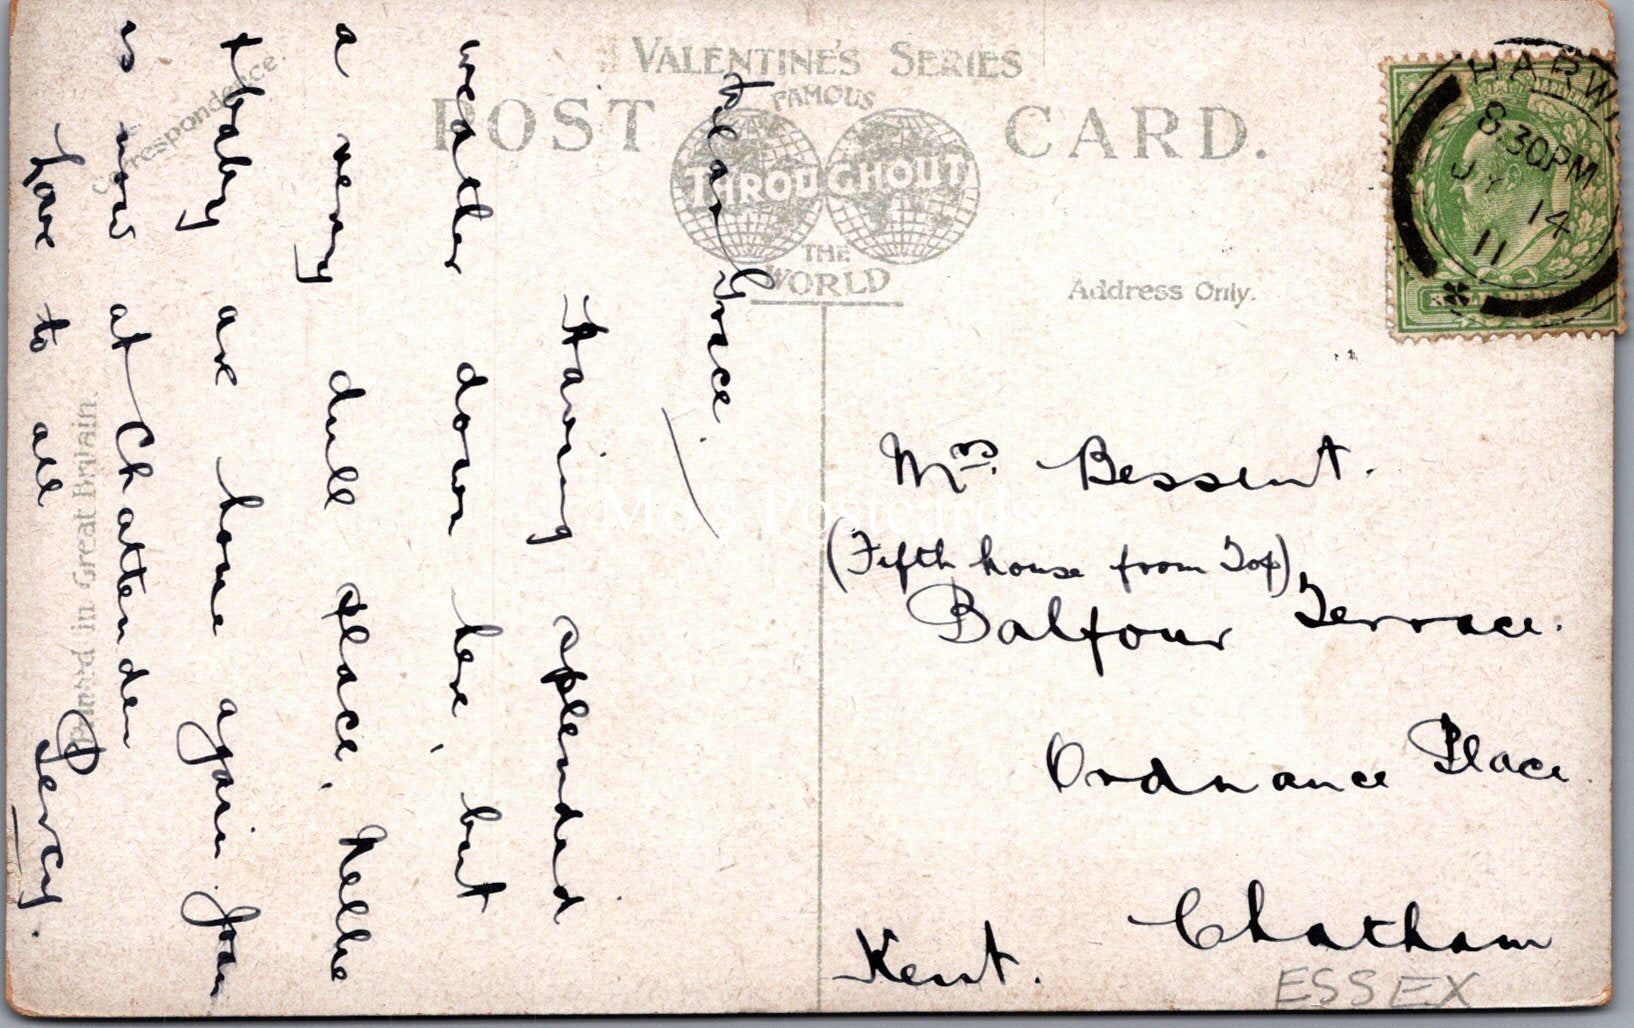 VALENTINE'S SERIES
POST CARD.
FAMOUS
THROUGHOUT
THE
WORLD
Correspondence.
Address Only.
Printed in Great Britain.
HARWI
8.30PM
JY 14
11
Dear Grace.
Having splended
weather down here, but
a very dull place. Nellie
+ baby are home again Joan
is now at Chattenden
Love to all
Percy.
Mrs. Bessent.
(Fifth house from Top)
Balfour Terrace.
Ordnance Place.
Chatham
Kent.
ESSEX
Mo's Postcards